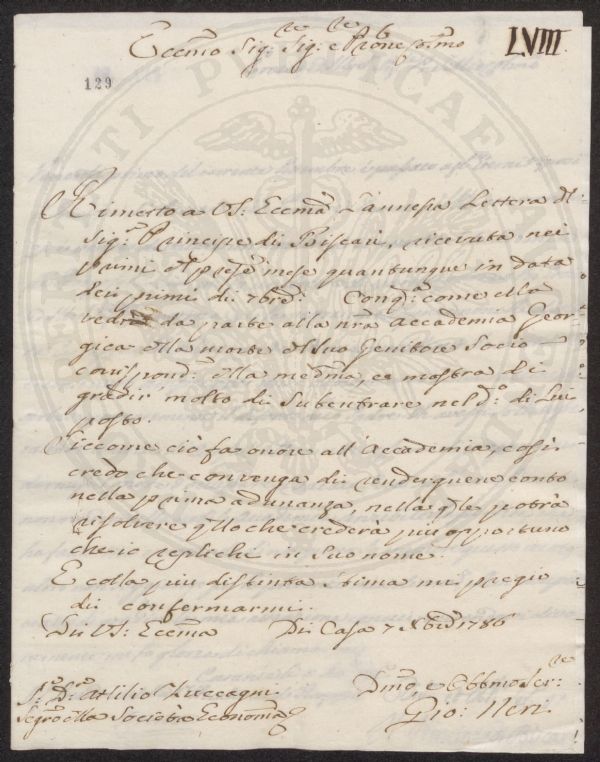 LVIII.
Eccmo Sig:re Sig:re e Prone Colmo
129
Rimetto a VS: Eccma l'annessa Lettera del
Sig:r Principe di Biscari, ricevuta nei
primi del presте mese quantunque in data
dei primi di 7bre: Con qta come ella
vedrà da parte alla nra Accademia Geor-
gica della morte del suo Genitore Socio
corrispond: della medma, e mostra di
gradir molto di subentrare nel di Lui
posto.
Siccome ciò fa onore all'Accademia, così
credo che convenga di renderguene conto
nella prima adunanza, nella qle potrà
risolvere qllo che crederà più opportuno
che io replichi in suo nome.
E colla più distinta stima mi pregio
di confermarmi.
Di VS: Eccma Di Casa 7 Xbre 1786
Sr Dr Attilio Zuccagni
Segrio della Società Economa
Dmo, e Obbmo Ser:re
Gio: Neri